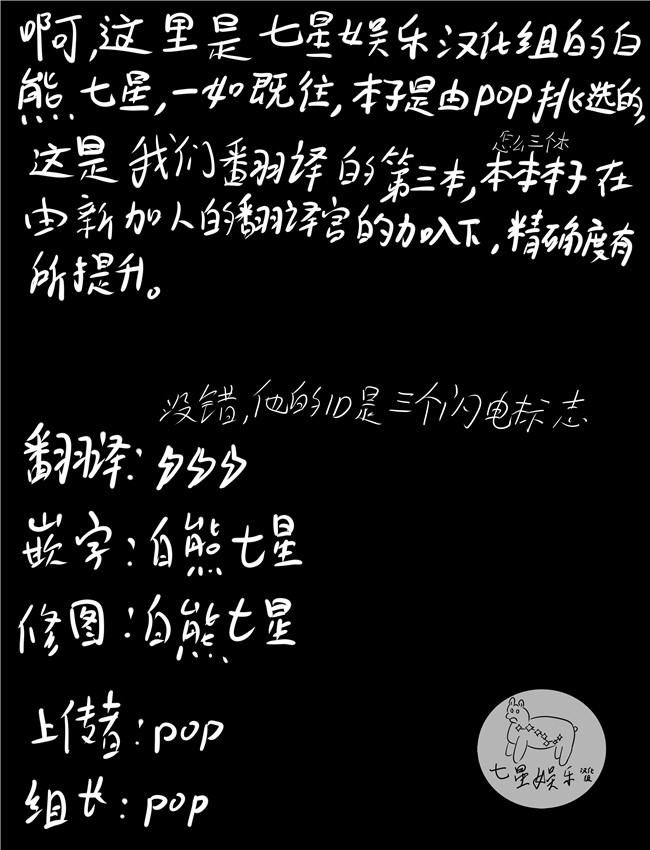 啊,这里是七星娱乐汉化组的白
熊七星,一如既往,本子是由pop挑选的,
怎么三体
这是我们翻译的第三本,本本本子在
由新加人的翻译官的加入下,精确度有
所提升。
没错,他的ID是三个闪电标志
翻译:⚡⚡⚡
嵌字:白熊七星
修图:白熊七星
上传者:pop
组长:pop
七星娱乐汉化组